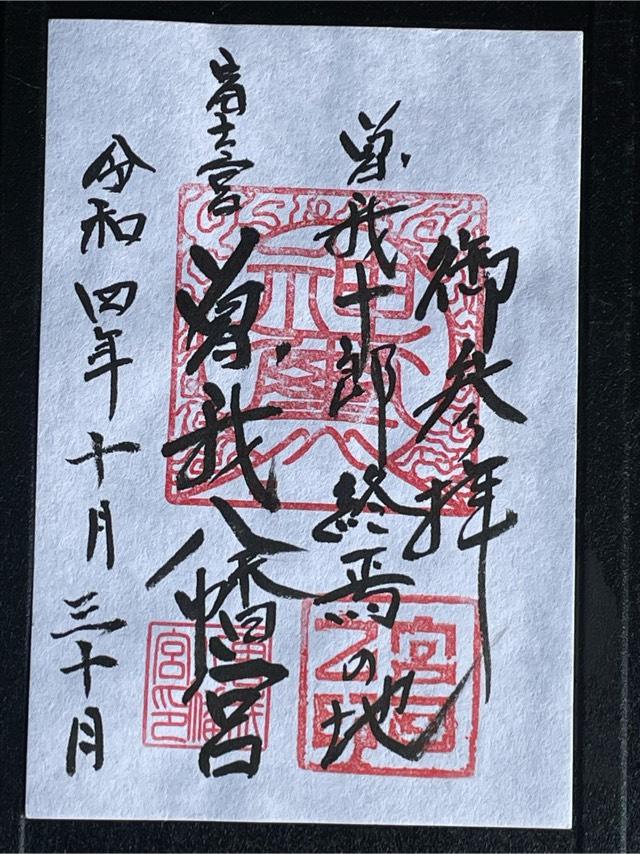 御参拝
曽我十郎終焉の地
富士宮
曽我八幡宮
令和四年十月三十月
宮司之印